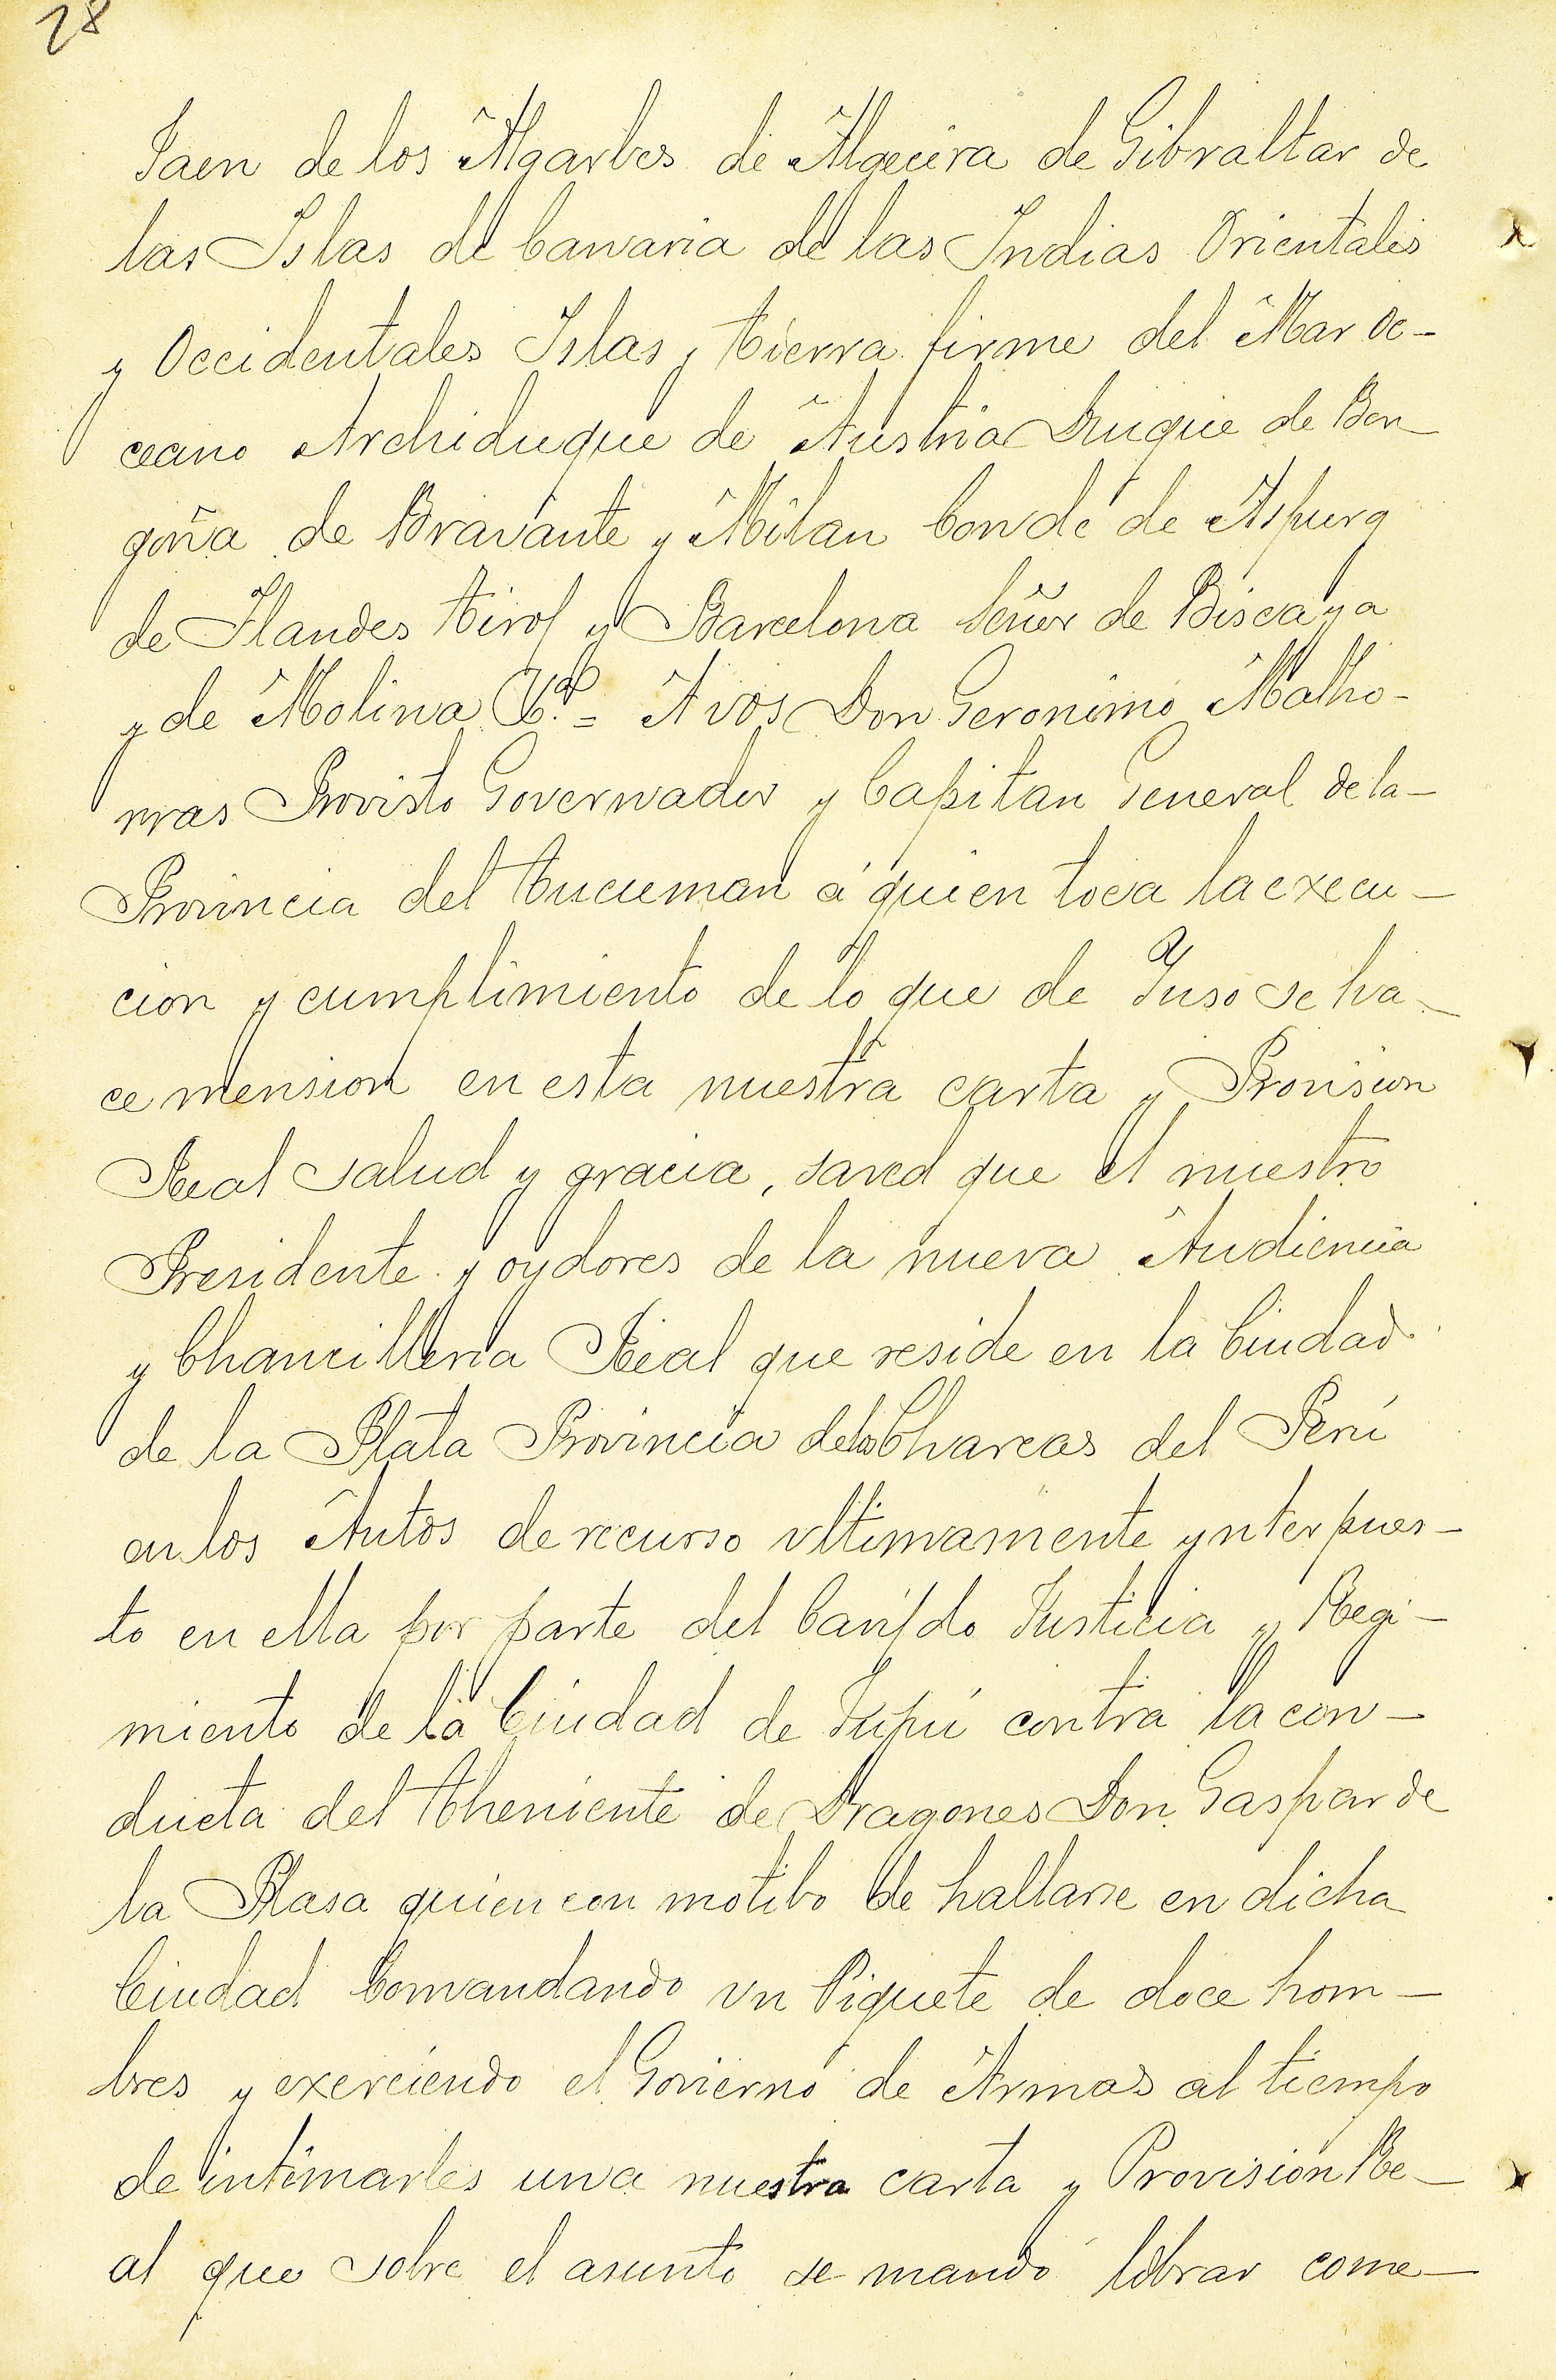 28
Jaen de los Algarbes de Algecira de Gibraltar de
las Islas de Canaria de las Indias Orientales
y Occidentales Islas y tierra firme del Mar oc-
ceano Archiduque de Austria Duque de Bor-
goña de Bravante y Milan Conde de Aspurg
de Flandes Tirol y Barcelona Señor de Biscaya
y de Molina &.ª = A vos Don Geronimo Matho-
rras Provisto Governador y Capitan General de la-
Provincia del Tucuman á quien toca la execu-
cion y cumplimiento de lo que de Yuso se ha-
ce mension en esta nuestra carta y Provision
Real salud y gracia, saved que el nuestro
Presidente y oydores de la nueva Audiencia
y Chancilleria Real que reside en la Ciudad
de la Plata Provincia delos Charcas del Perú
en los Autos de recurso vltimamente ynterpues-
to en ella por parte del Cavildo Justicia y Regi-
miento de la Ciudad de Jujuí contra la con-
ducta del Theniente de Dragones Don Gaspar de
la Plasa quien con motibo de hallarse en dicha
Ciudad Comandando vn Piquete de doce hom-
bres y exerciendo el Govierno de Armas al tiempo
de intimarles una nuestra carta y Provision Re-
al que sobre el asunto se mandó librar come-